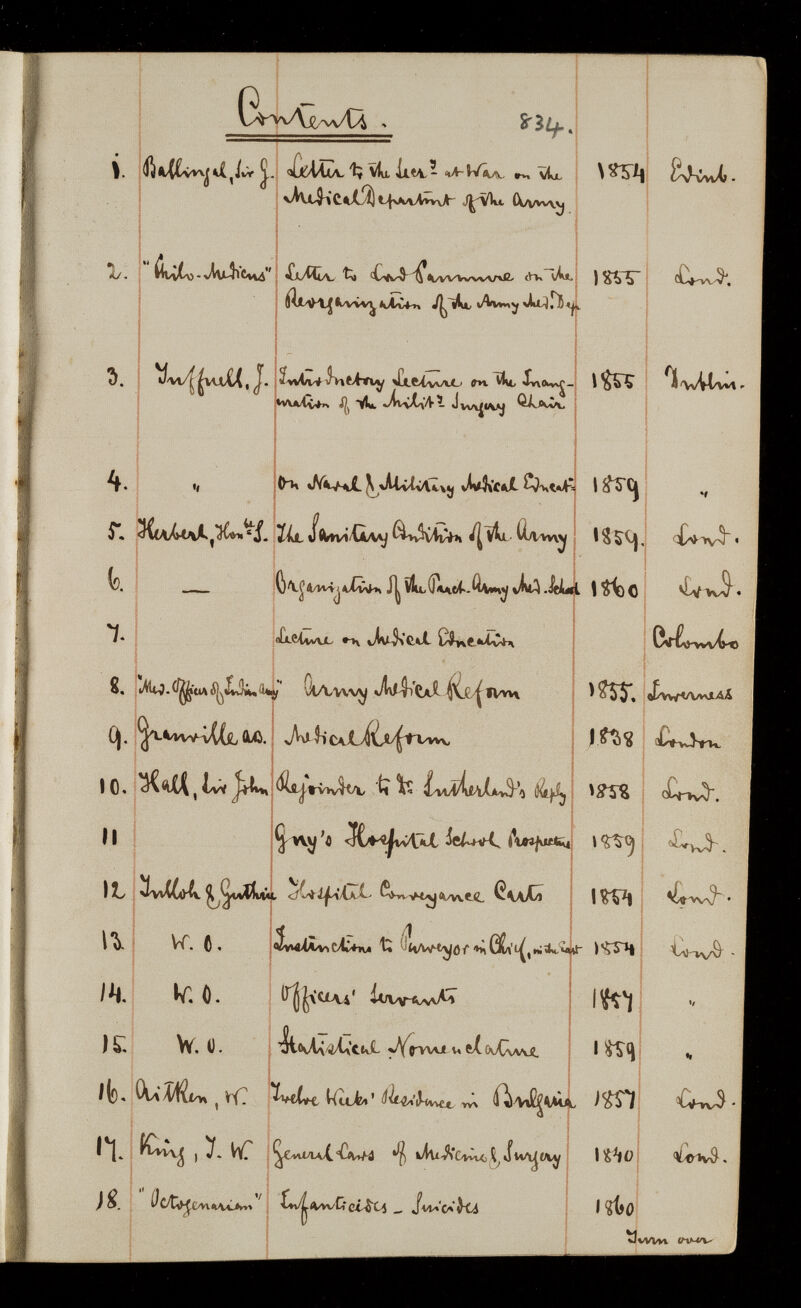 Contents. 834.
1. Ballingal, Sir G. Letter to the Secry at War on the 1854 Edinb.
Medical Department of the Army.
2. "Philo-Medicus" Letter to Lord Panmure on the 1855 Lond.
Reorganization of the Army Med. Dep
3. Tuffnell, J. Introductory Lecture on the Inaug- 1855 Dublin.
uration of the Mility Surgery Chair
4. " On Naval & Military Medical Educatn 1859 "
5. Herbert, Honble S. The Sanitary Condition of the Army 1859. Lond.
6. — Organization of the Pract. Army Med. School 1860 Lond.
7. Lecture on Medical Education Colombo
8. "Med. Officer of Indian Army" Army Medical Reform 1855. Inverness
9. Granville A.B. Medical Reform 1838 London
10. Hall, Sir John Rejoinder to Dr Sutherland's Reply 1858 Lond.
11 Guy's Hospital School Prospectus 1859 Lond.
12 Tulloh & Guthrie Hospital Conveyance Carts 1854 Lond.
13. W. O. Instructions to Purveyor in Chief, in the East 1854 Lond.
14. W. O. Officers' Servants 1857 "
15. W. O. Statistical Nomenclature 1859 "
16. Aitken, W. Twelve Weeks' Residence in Bulgaria 1857 Lond.
17. King, T. W. General Laws of Medicine & Surgery 1840 Lond.
18. "Octogenarian" Infanticides - Suicides 1860
Turn over